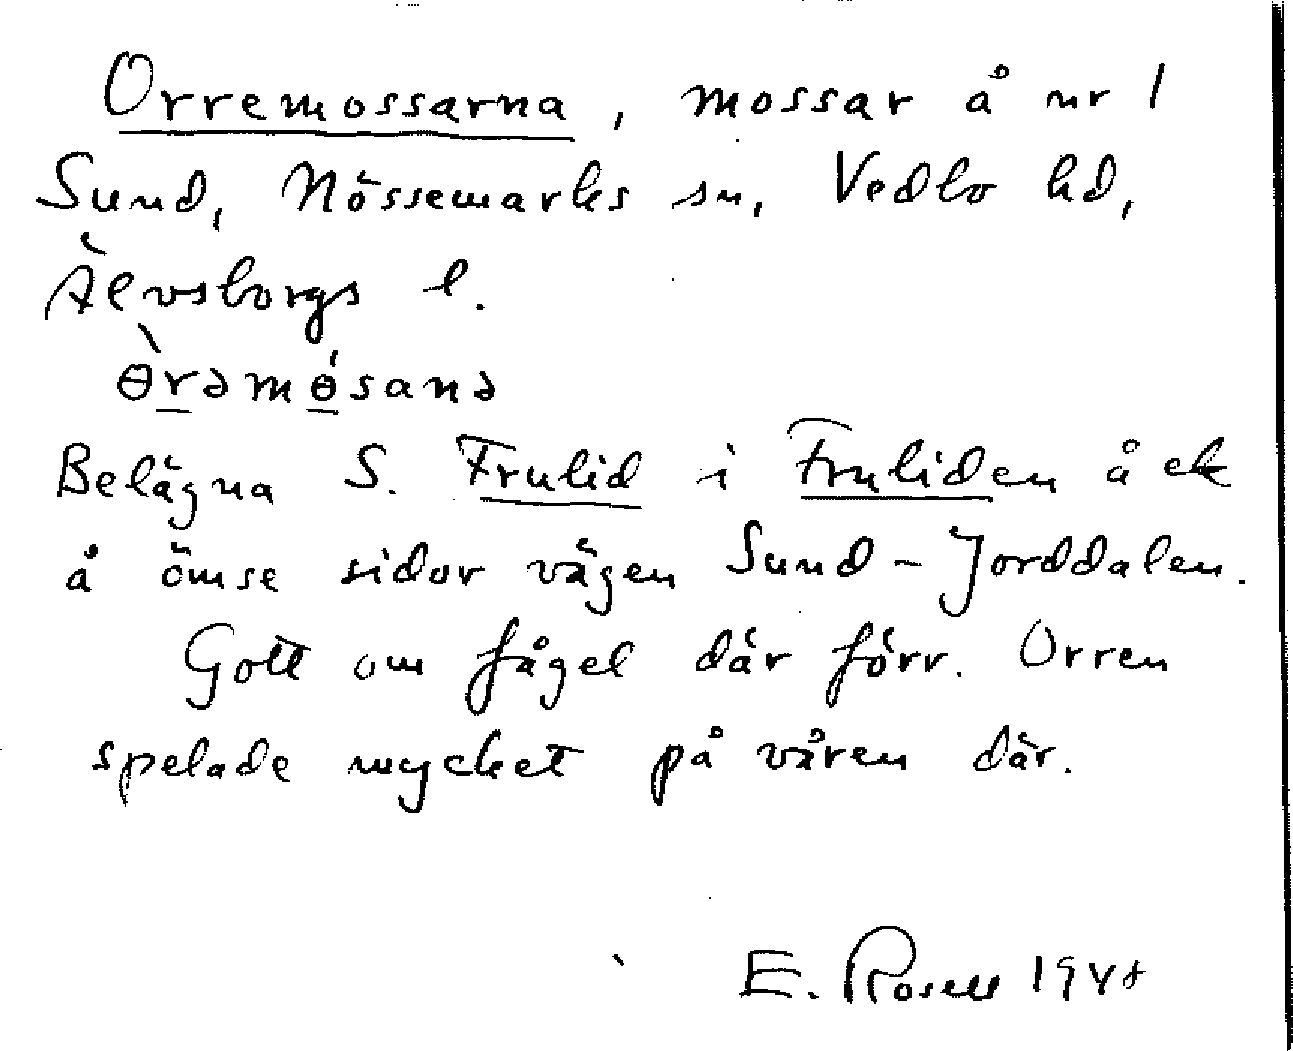 Orremossarna, mossar å nr 1
Sund, Nössemarks sn, Vedbo hd,
Älvsborgs l.
ɵ̀rəmɵ́sanə
Belägna S. Frulid i Fruliden å ek
å ömse sidor vägen Sund – Jorddalen.
Gott om fågel där förr. Orren
spelade mycket på våren där.
E. Rosell